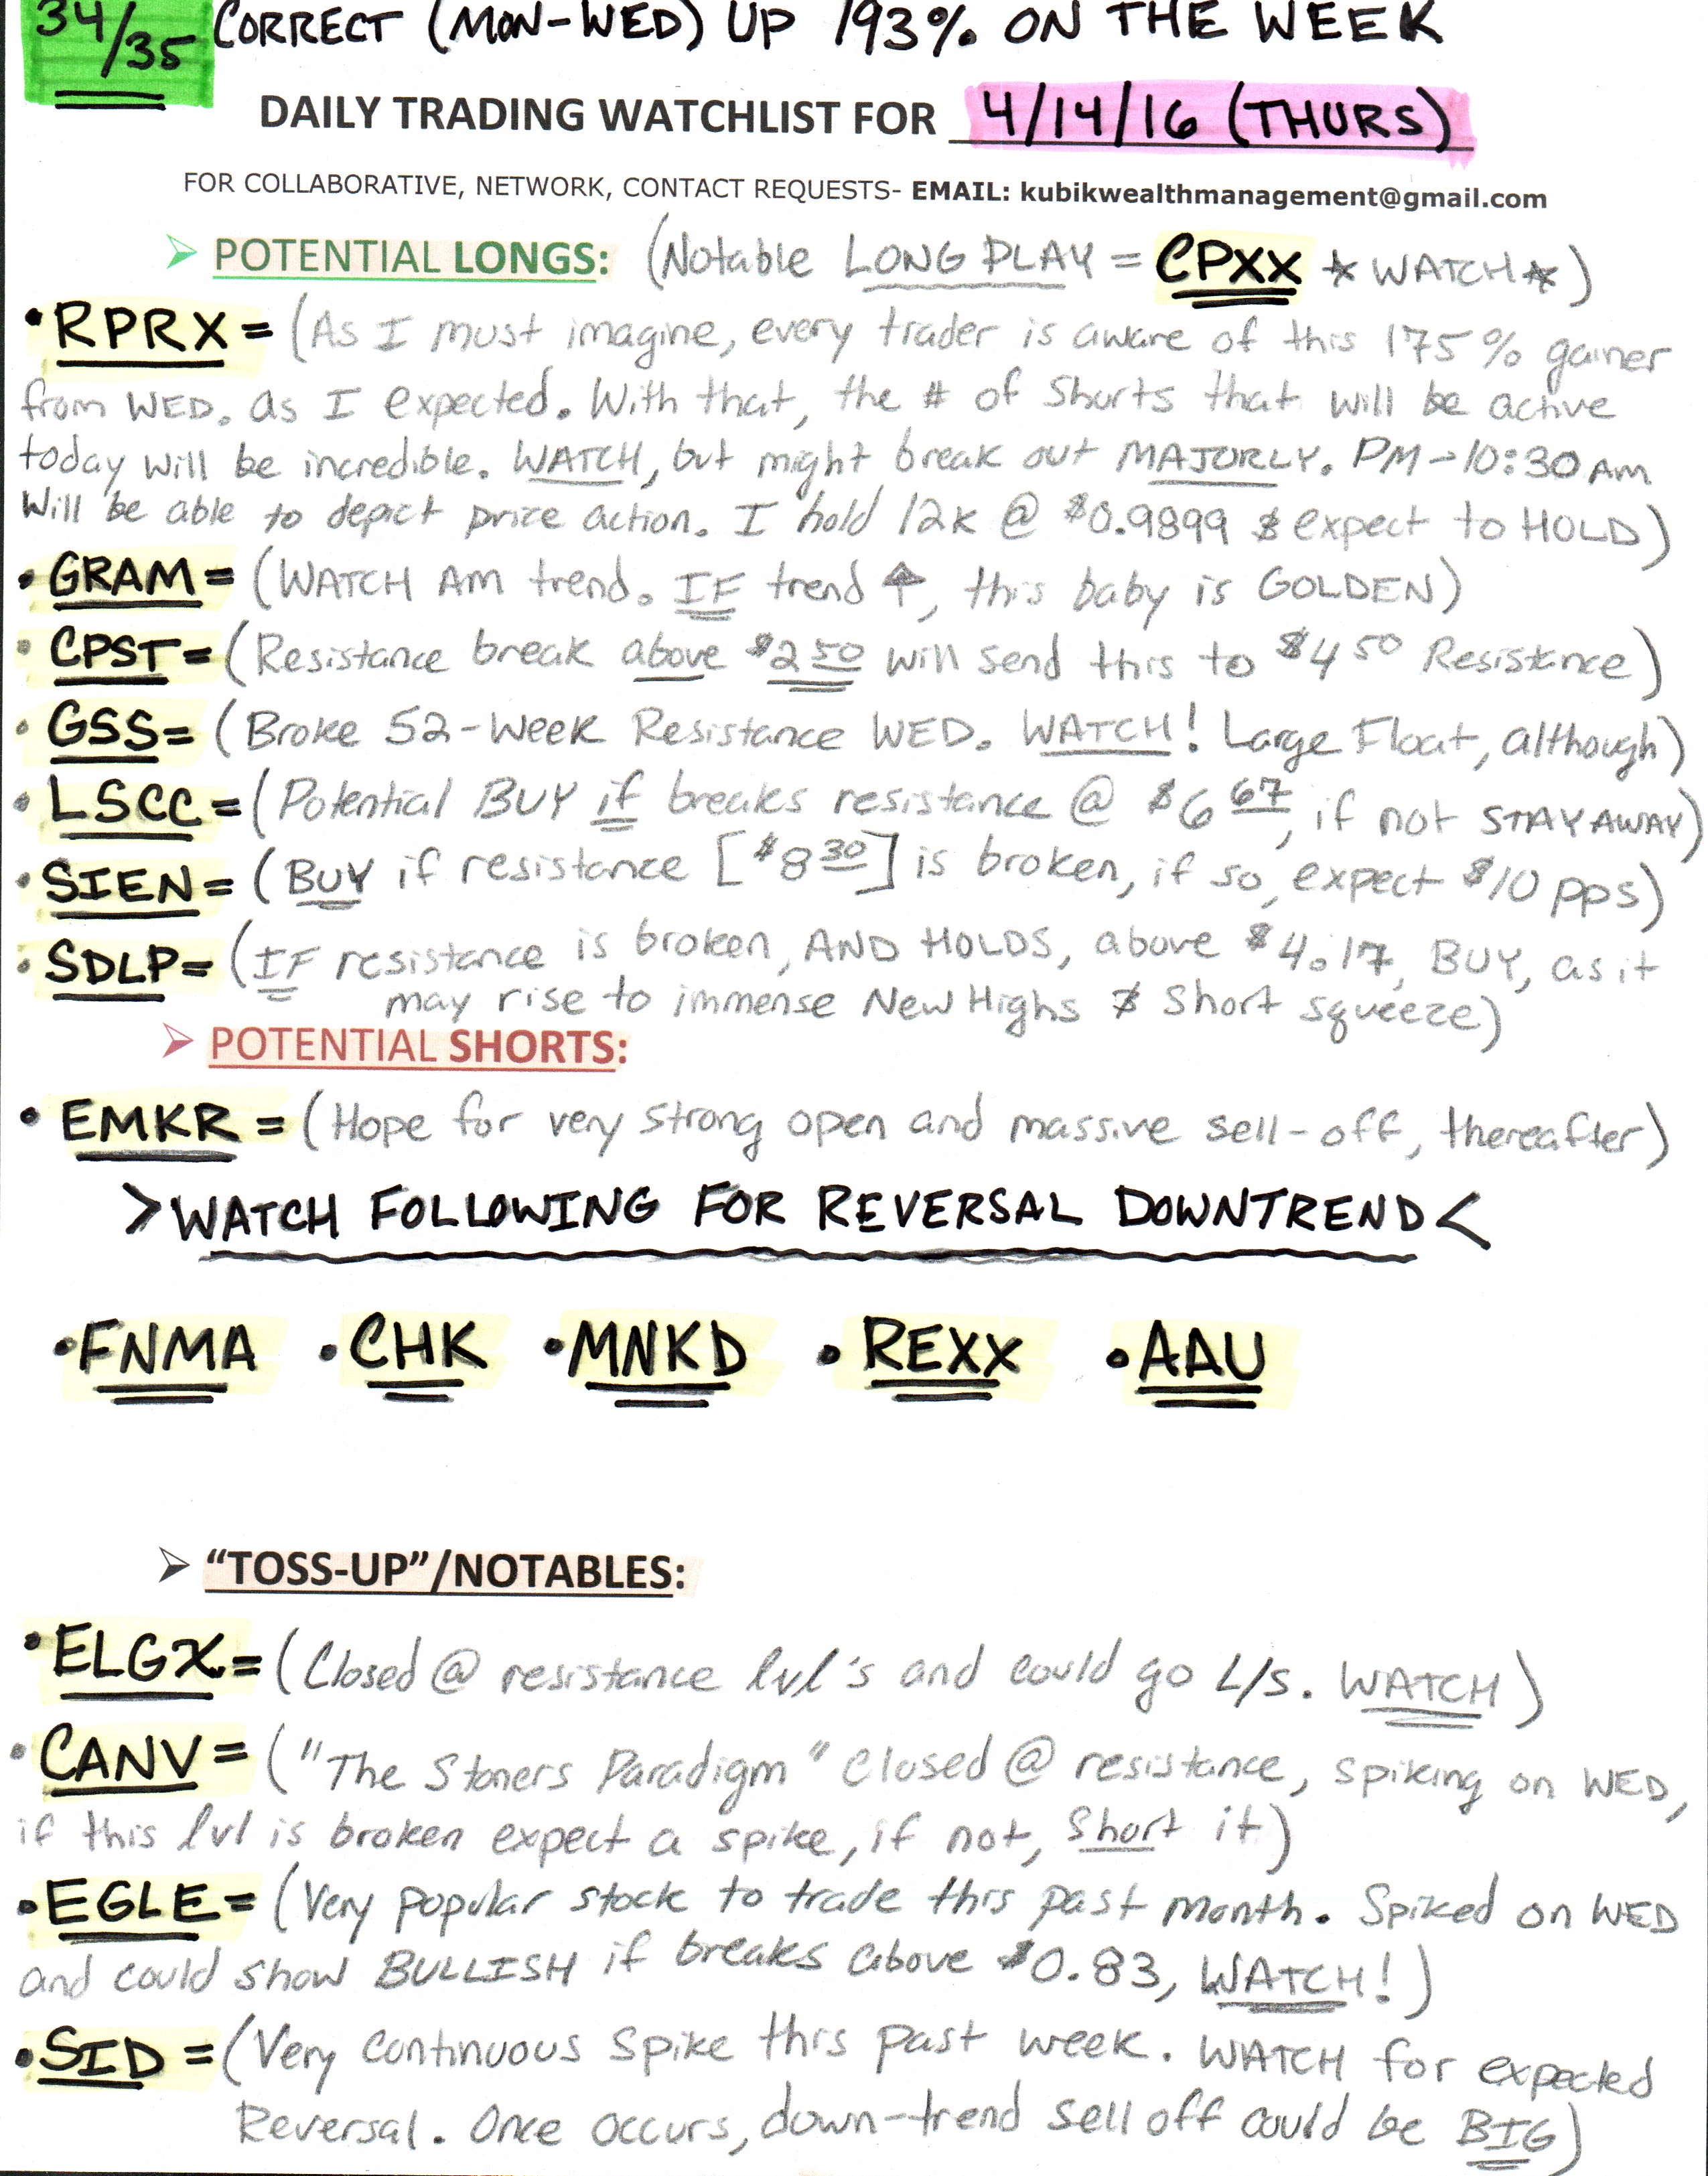 34/35 CORRECT (MON-WED) UP 193% ON THE WEEK
DAILY TRADING WATCHLIST FOR 4/14/16 (THURS)
FOR COLLABORATIVE, NETWORK, CONTACT REQUESTS- EMAIL: kubikwealthmanagement@gmail.com
➢ POTENTIAL LONGS: (Notable LONG PLAY = CPXX * WATCH *)
• RPRX = (As I must imagine, every trader is aware of this 175% gainer
from WED. as I expected. With that, the # of shorts that will be active
today will be incredible. WATCH, but might break out MAJORLY. PM-10:30AM
will be able to depict price action. I hold 12K @ $0.9899 & expect to HOLD)
• GRAM = (WATCH AM trend. IF trend ↑, this baby is GOLDEN)
• CPST = (Resistance break above $2 50 will send this to $4 50 Resistance)
• GSS = (Broke 52-Week Resistance WED. WATCH! Large Float, although)
• LSCC = (Potential BUY if breaks resistance @ $6 67, if not STAY AWAY)
• SIEN = (BUY if resistance [$8 30] is broken, if so, expect $10 pps)
• SDLP = (IF resistance is broken, AND HOLDS, above $4.17, BUY, as it
may rise to immense New Highs & Short squeeze)
➢ POTENTIAL SHORTS:
• EMKR = (Hope for very strong open and massive sell-off, thereafter)
> WATCH FOLLOWING FOR REVERSAL DOWNTREND <
• FNMA • CHK • MNKD • REXX • AAU
➢ “TOSS-UP”/NOTABLES:
• ELGX = (Closed @ resistance lvl's and could go L/S. WATCH)
• CANV = ("The Stoners Paradigm" closed @ resistance, spiking on WED,
if this lvl is broken expect a spike, if not, short it)
• EGLE = (Very popular stock to trade this past month. Spiked on WED
and could show BULLISH if breaks above $0.83, WATCH!)
• SID = (Very continuous spike this past week. WATCH for expected
Reversal. Once occurs, down-trend sell off could be BIG)